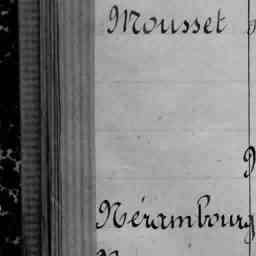 Mousset
Nérambourg